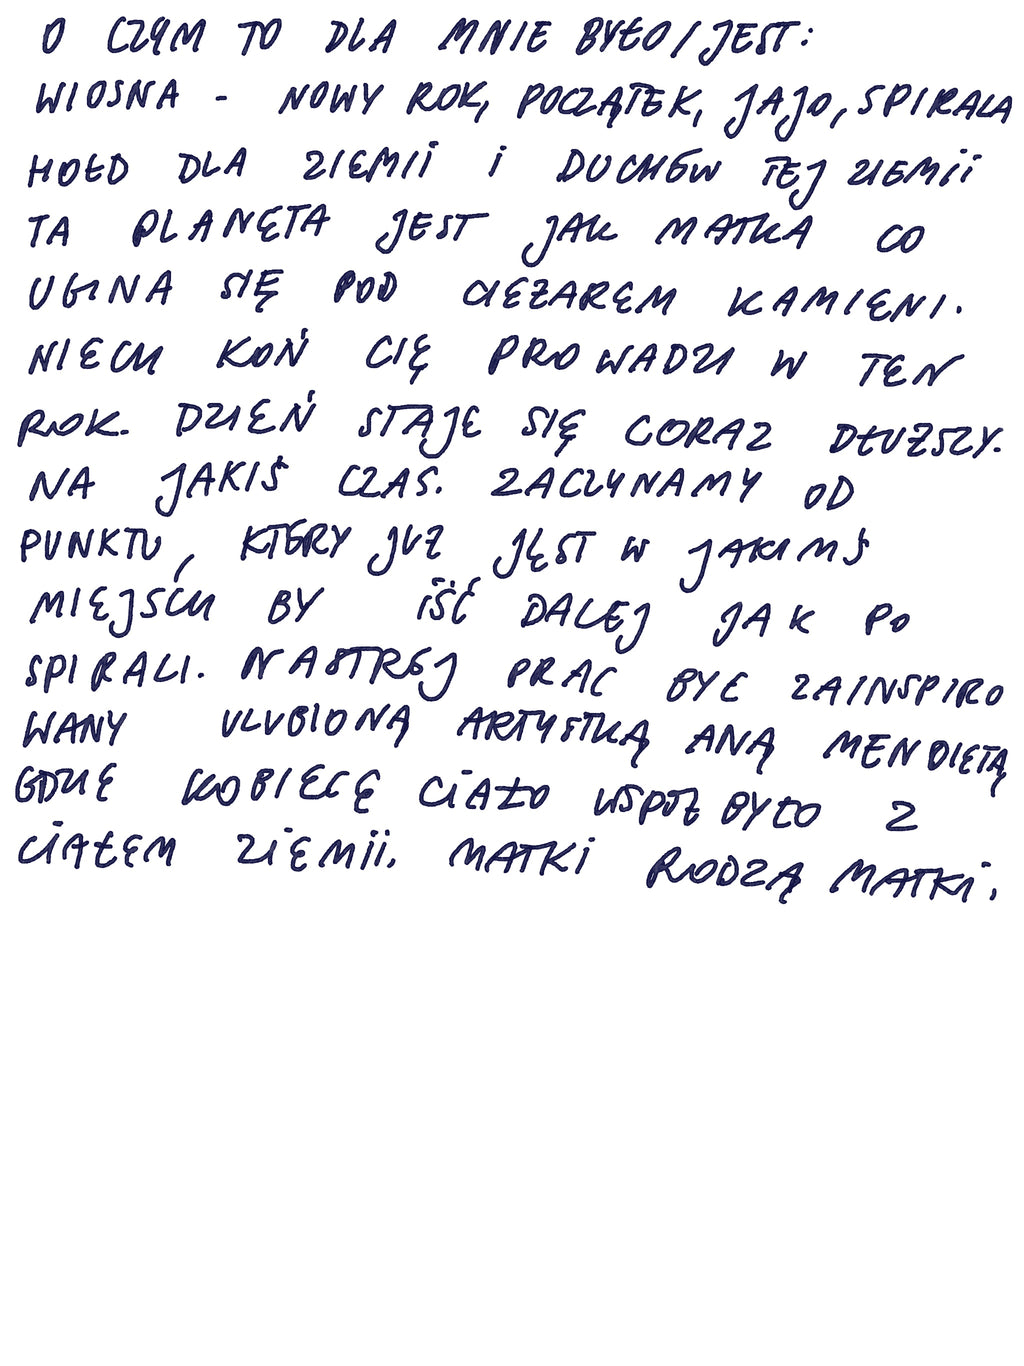 O CZYM TO DLA MNIE BYŁO/JEST:
WIOSNA - NOWY ROK, POCZĄTEK, JAJO, SPIRALA
HOŁD DLA ZIEMII i DUCHÓW TEJ ZIEMII
TA PLANETA JEST JAK MATKA CO
UGINA SIĘ POD CIEŻAREM KAMIENI.
NIECH KOŃ CIĘ PROWADZI W TEN
ROK. DZIEŃ STAJE SIĘ CORAZ DŁUŻSZY.
NA JAKIŚ CZAS. ZACZYNAMY OD
PUNKTU, KTÓRY JUŻ JEST W JAKIMŚ
MIEJSCU BY iŚĆ DALEJ JAK PO
SPIRALI. NASTRÓJ PRAC BYŁ ZAINSPIRO
WANY ULUBIONĄ ARTYSTKĄ ANĄ MENDIETĄ
GDZIE KOBIECE CIAŁO WSPÓŁBYŁO Z
CIAŁEM ZIEMII. MATKI RODZĄ MATKI.